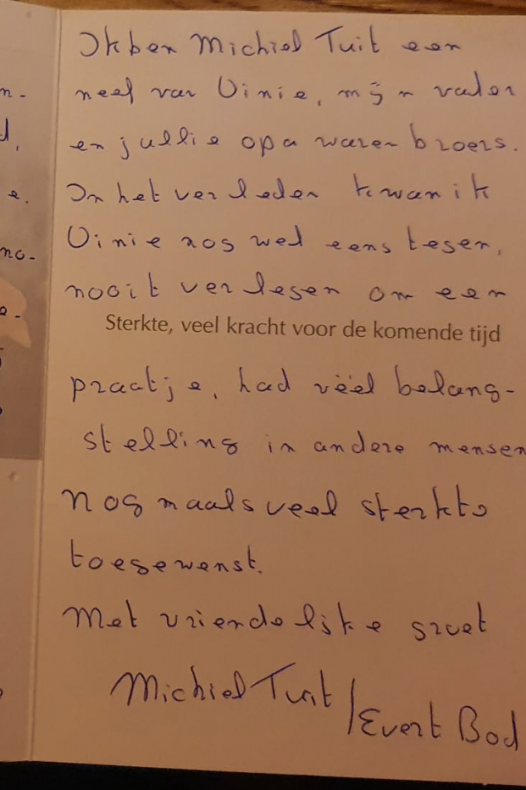 n-
d,
e.
no-
e.
Ik ben Michiel Tuit een
neef van Vinie, mijn vader
en jullie opa waren broers.
In het verleden kwam ik
Vinie nog wel eens tegen,
nooit verlegen om een
Sterkte, veel kracht voor de komende tijd
praatje, had véél belang-
stelling in andere mensen
Nogmaals veel sterkte
toegewenst.
Met vriendelijke groet
Michiel Tuit / Evert Bod